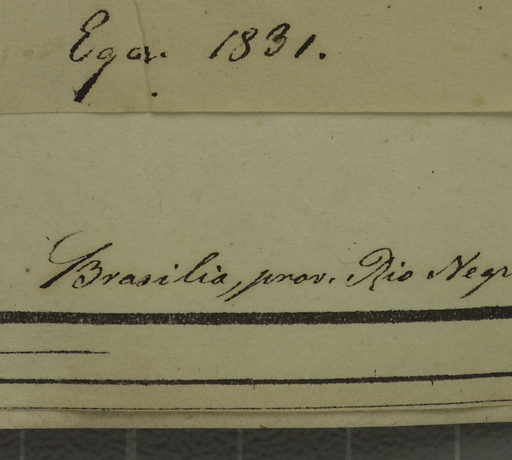 Ega. 1831.
Brasilia, prov. Rio Negr